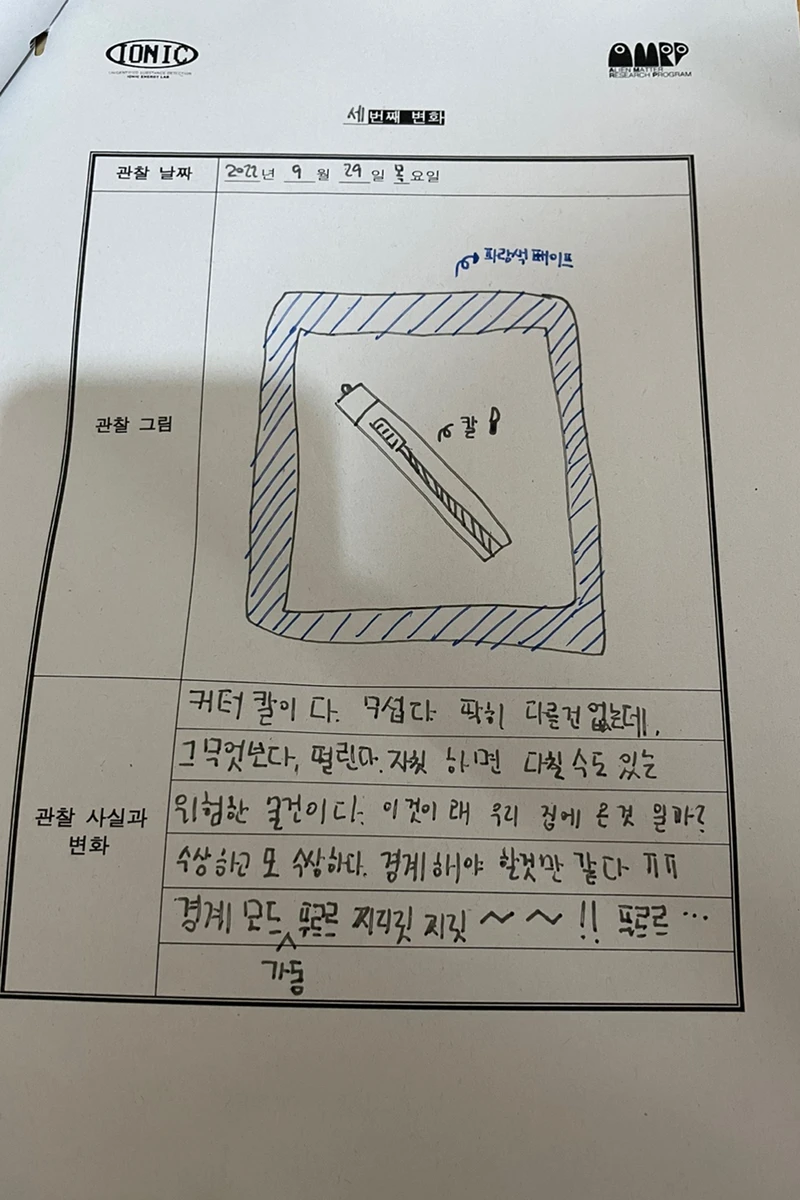 IONIC
UNIDENTIFIED SUBSTANCE DETECTION
IONIC ENERGY LAB
AMRP
ALIEN MATTER
RESEARCH PROGRAM
세번째 변화
관찰 날짜
2022년 9월 29일 목요일
파랑색 테이프
관찰 그림
칼
관찰 사실과
변화
커터 칼이 다. 무섭다 딱히 다를건 없는데,
그무엇보다, 떨린다. 자칫 하면 다칠 수도 있는
위험한 물건이다. 이것이 왜 우리 집에 온것 일까?
수상하고 또 수상하다. 경계해야 할것만 같다 ㅠㅠ
경계 모드 푸르르 찌리릿 지릿 ~ ~ !! 푸르르 …
가동